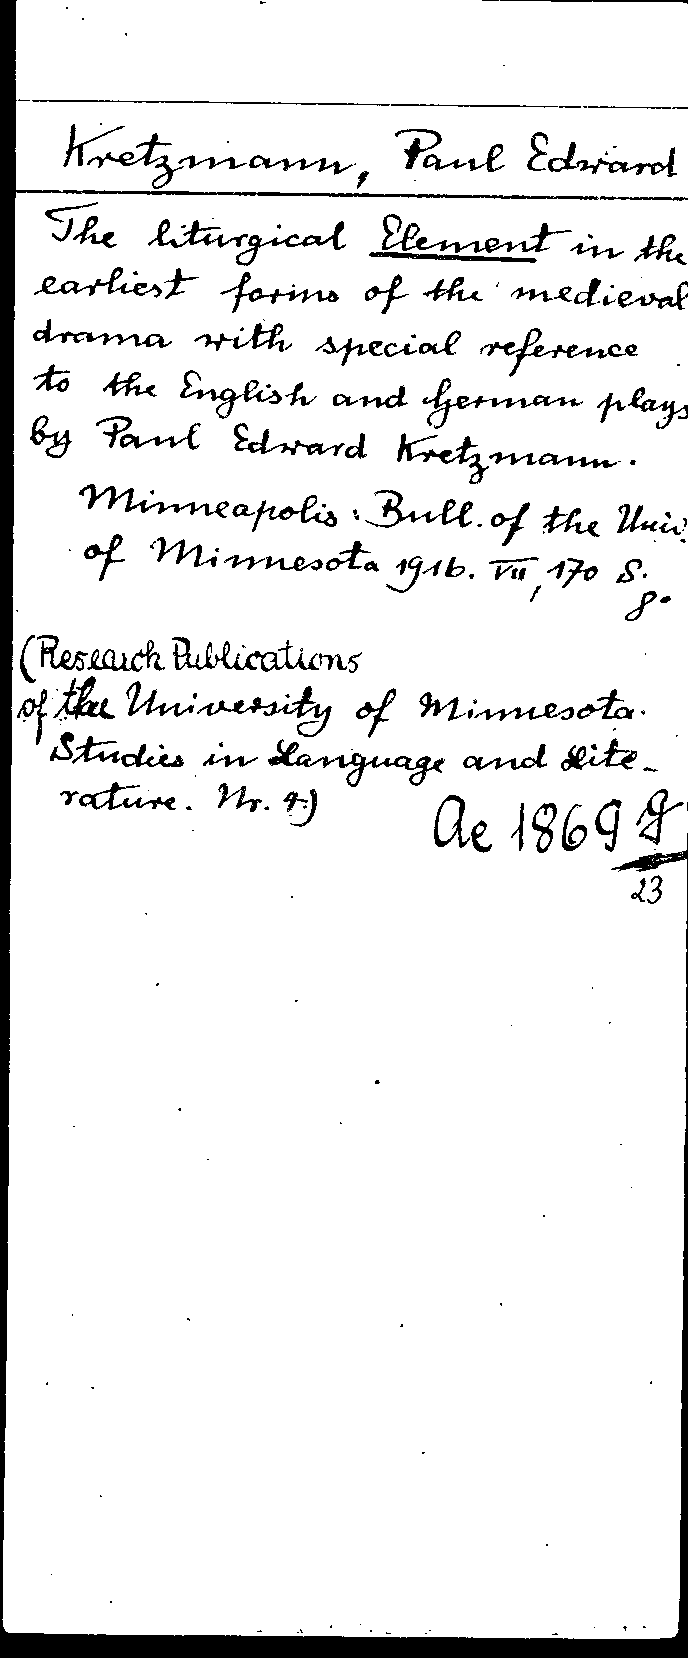 Kretzmann, Paul Edward
The liturgical Element in the
earliest forms of the medieval
drama with special reference
to the English and German plays
by Paul Edward Kretzmann.
Minneapolis: Bull. of the Univ.
of Minnesota 1916. VII, 170 S.
8°
(Research Publications
of the University of Minnesota.
Studies in Language and Lite-
rature. Nr. 4.)
Ae 1869 g
23